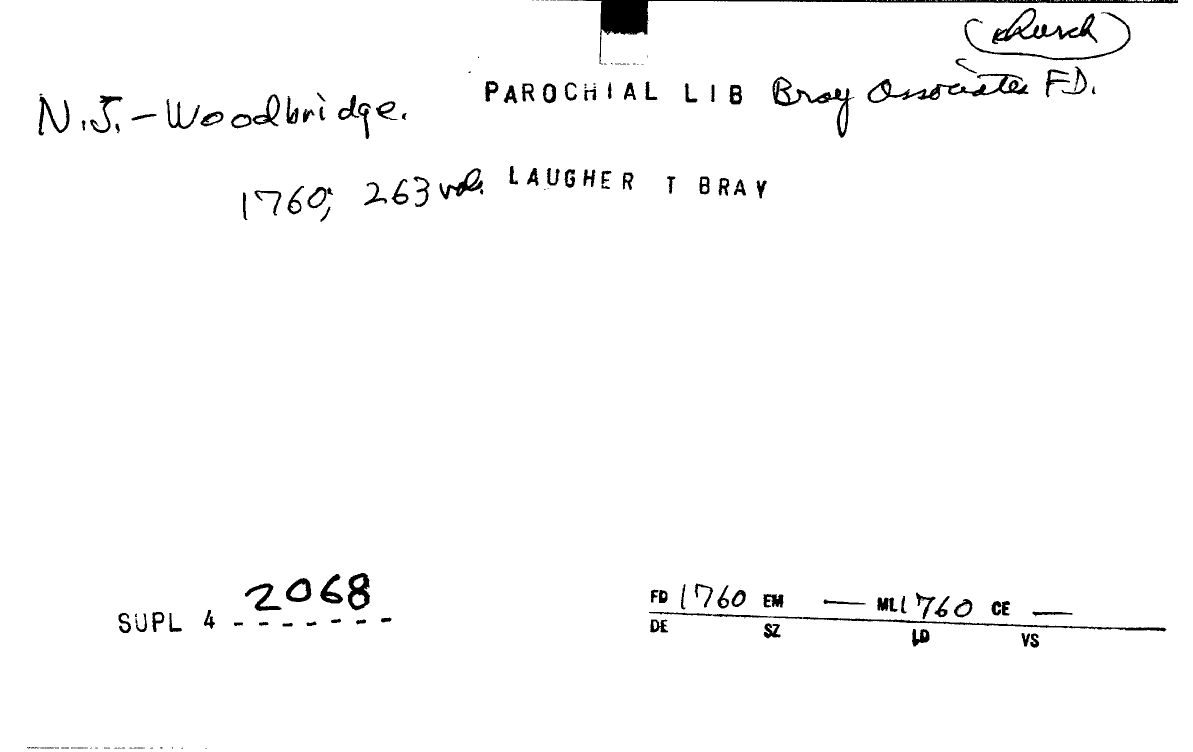 (church)
N.J. - Woodbridge. PAROCHIAL LIB Bray Associates FD.
1760; 263 vol. LAUGHER T BRAY
SUPL 4 2068
FD 1760 EM — ML 1760 CE —
DE SZ LD VS